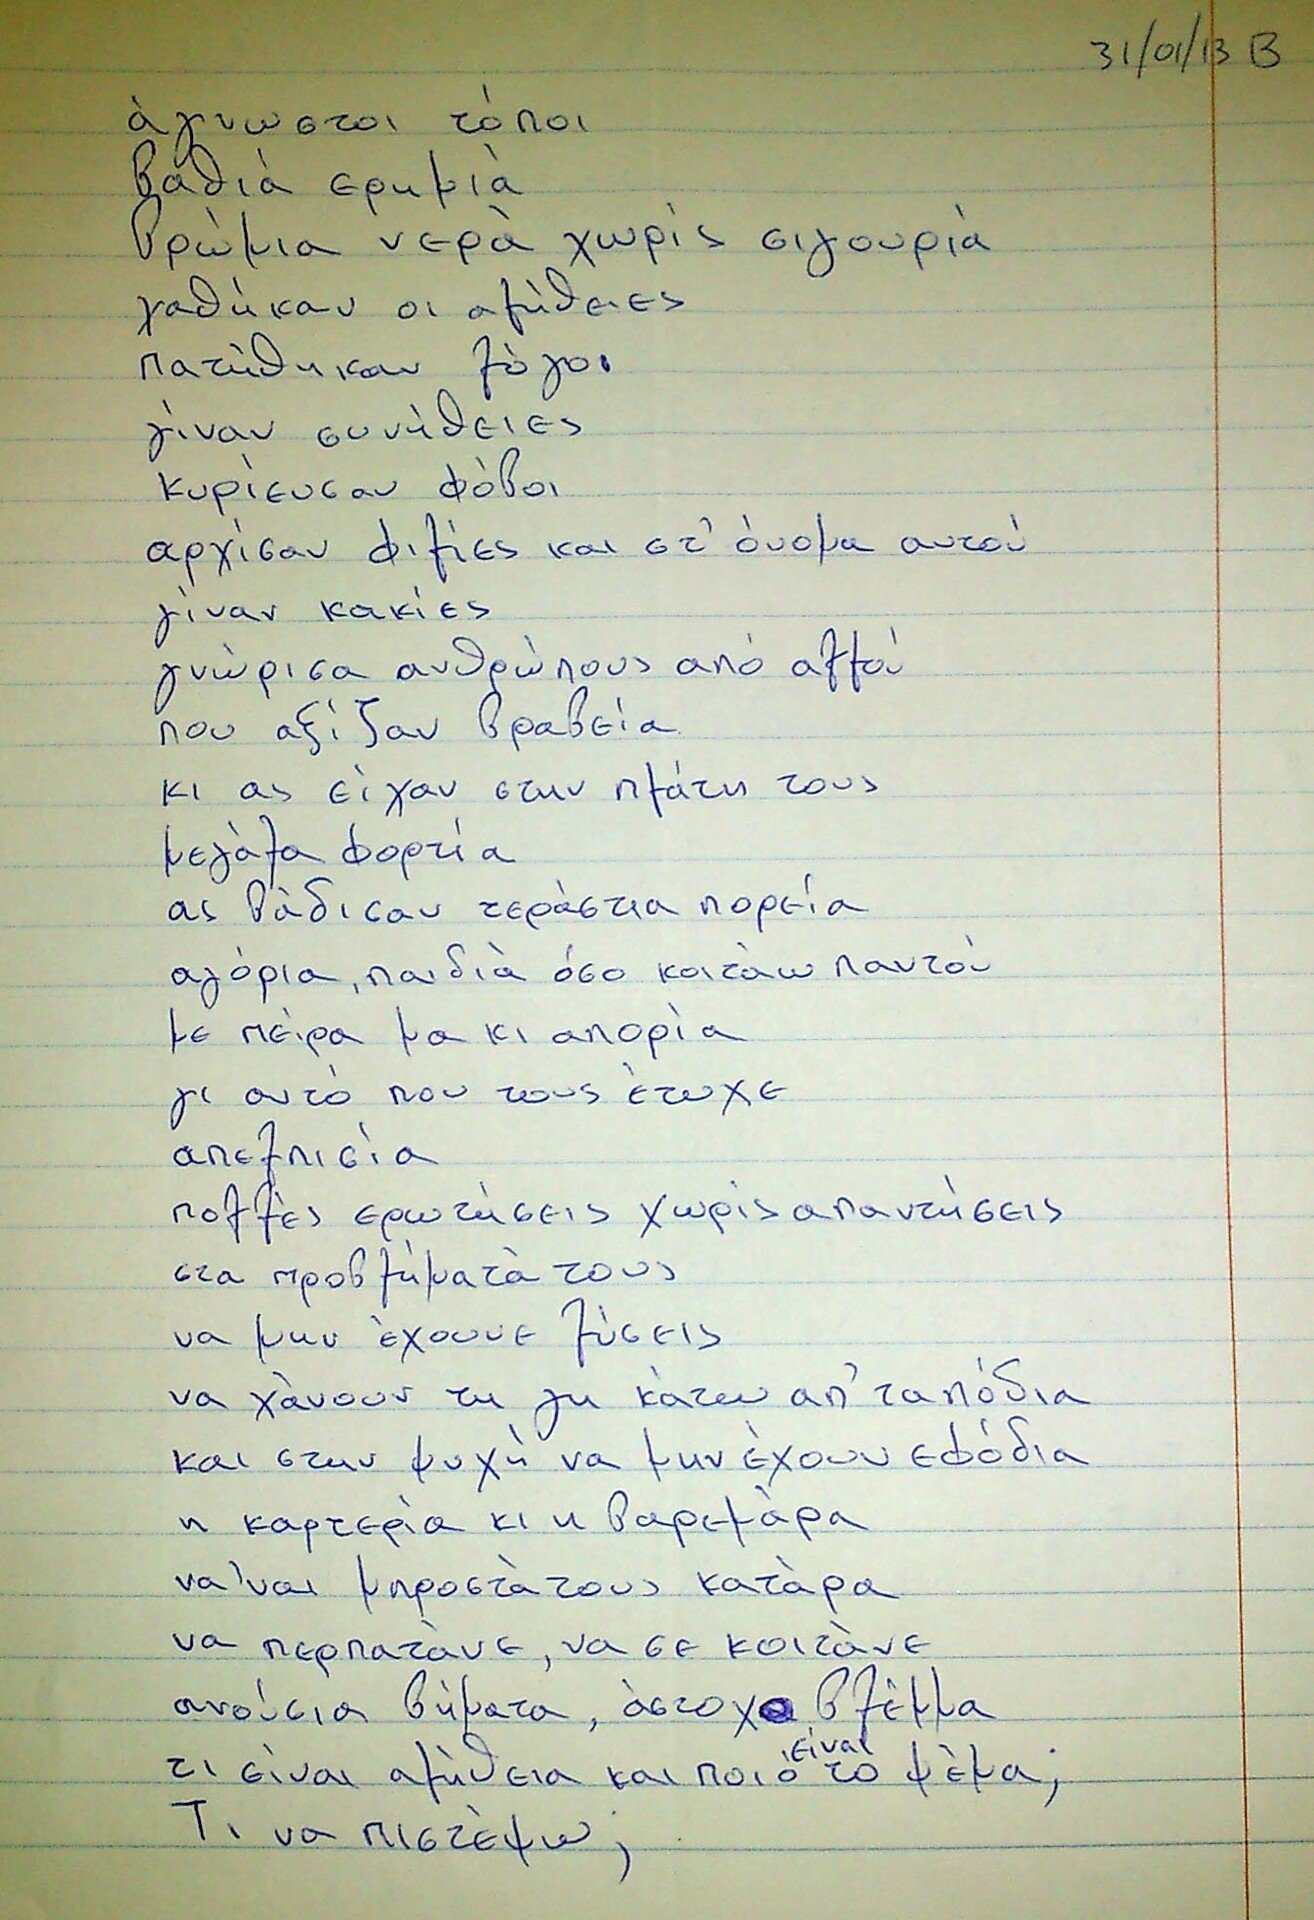 31/01/13 B
άγνωστοι τόποι
βαθιά ερημιά
βρώμια νερά χωρίς σιγουριά
χαθήκαν οι αλήθειες
πατήθηκαν λόγοι
γίναν συνήθειες
κυρίευσαν φόβοι
αρχίσαν φιλίες και στ' όνομα αυτού
γίναν κακίες
γνώρισα ανθρώπους από αλλού
που αξίζαν βραβεία
κι ας είχαν στην πλάτη τους
μεγάλα φορτία
ας βάδισαν τεράστια πορεία
αγόρια, παιδιά όσο κοιτάω παντού
με πείρα μα κι απορία
γι αυτό που τους έτυχε
απελπισία
πολλές ερωτήσεις χωρίς απαντήσεις
στα προβλήματά τους
να μην έχουνε λύσεις
να χάνουν τη γη κάτω απ' τα πόδια
και στην ψυχή να μην έχουν εφόδια
η καρτερία κι η βαρεμάρα
να 'ναι μπροστά τους κατάρα
να περπατάνε, να σε κοιτάνε
ανούσια βήματα, άστοχο βλέμμα
τι είναι αλήθεια και ποιό είναι το ψέμα;
Τι να πιστέψω;